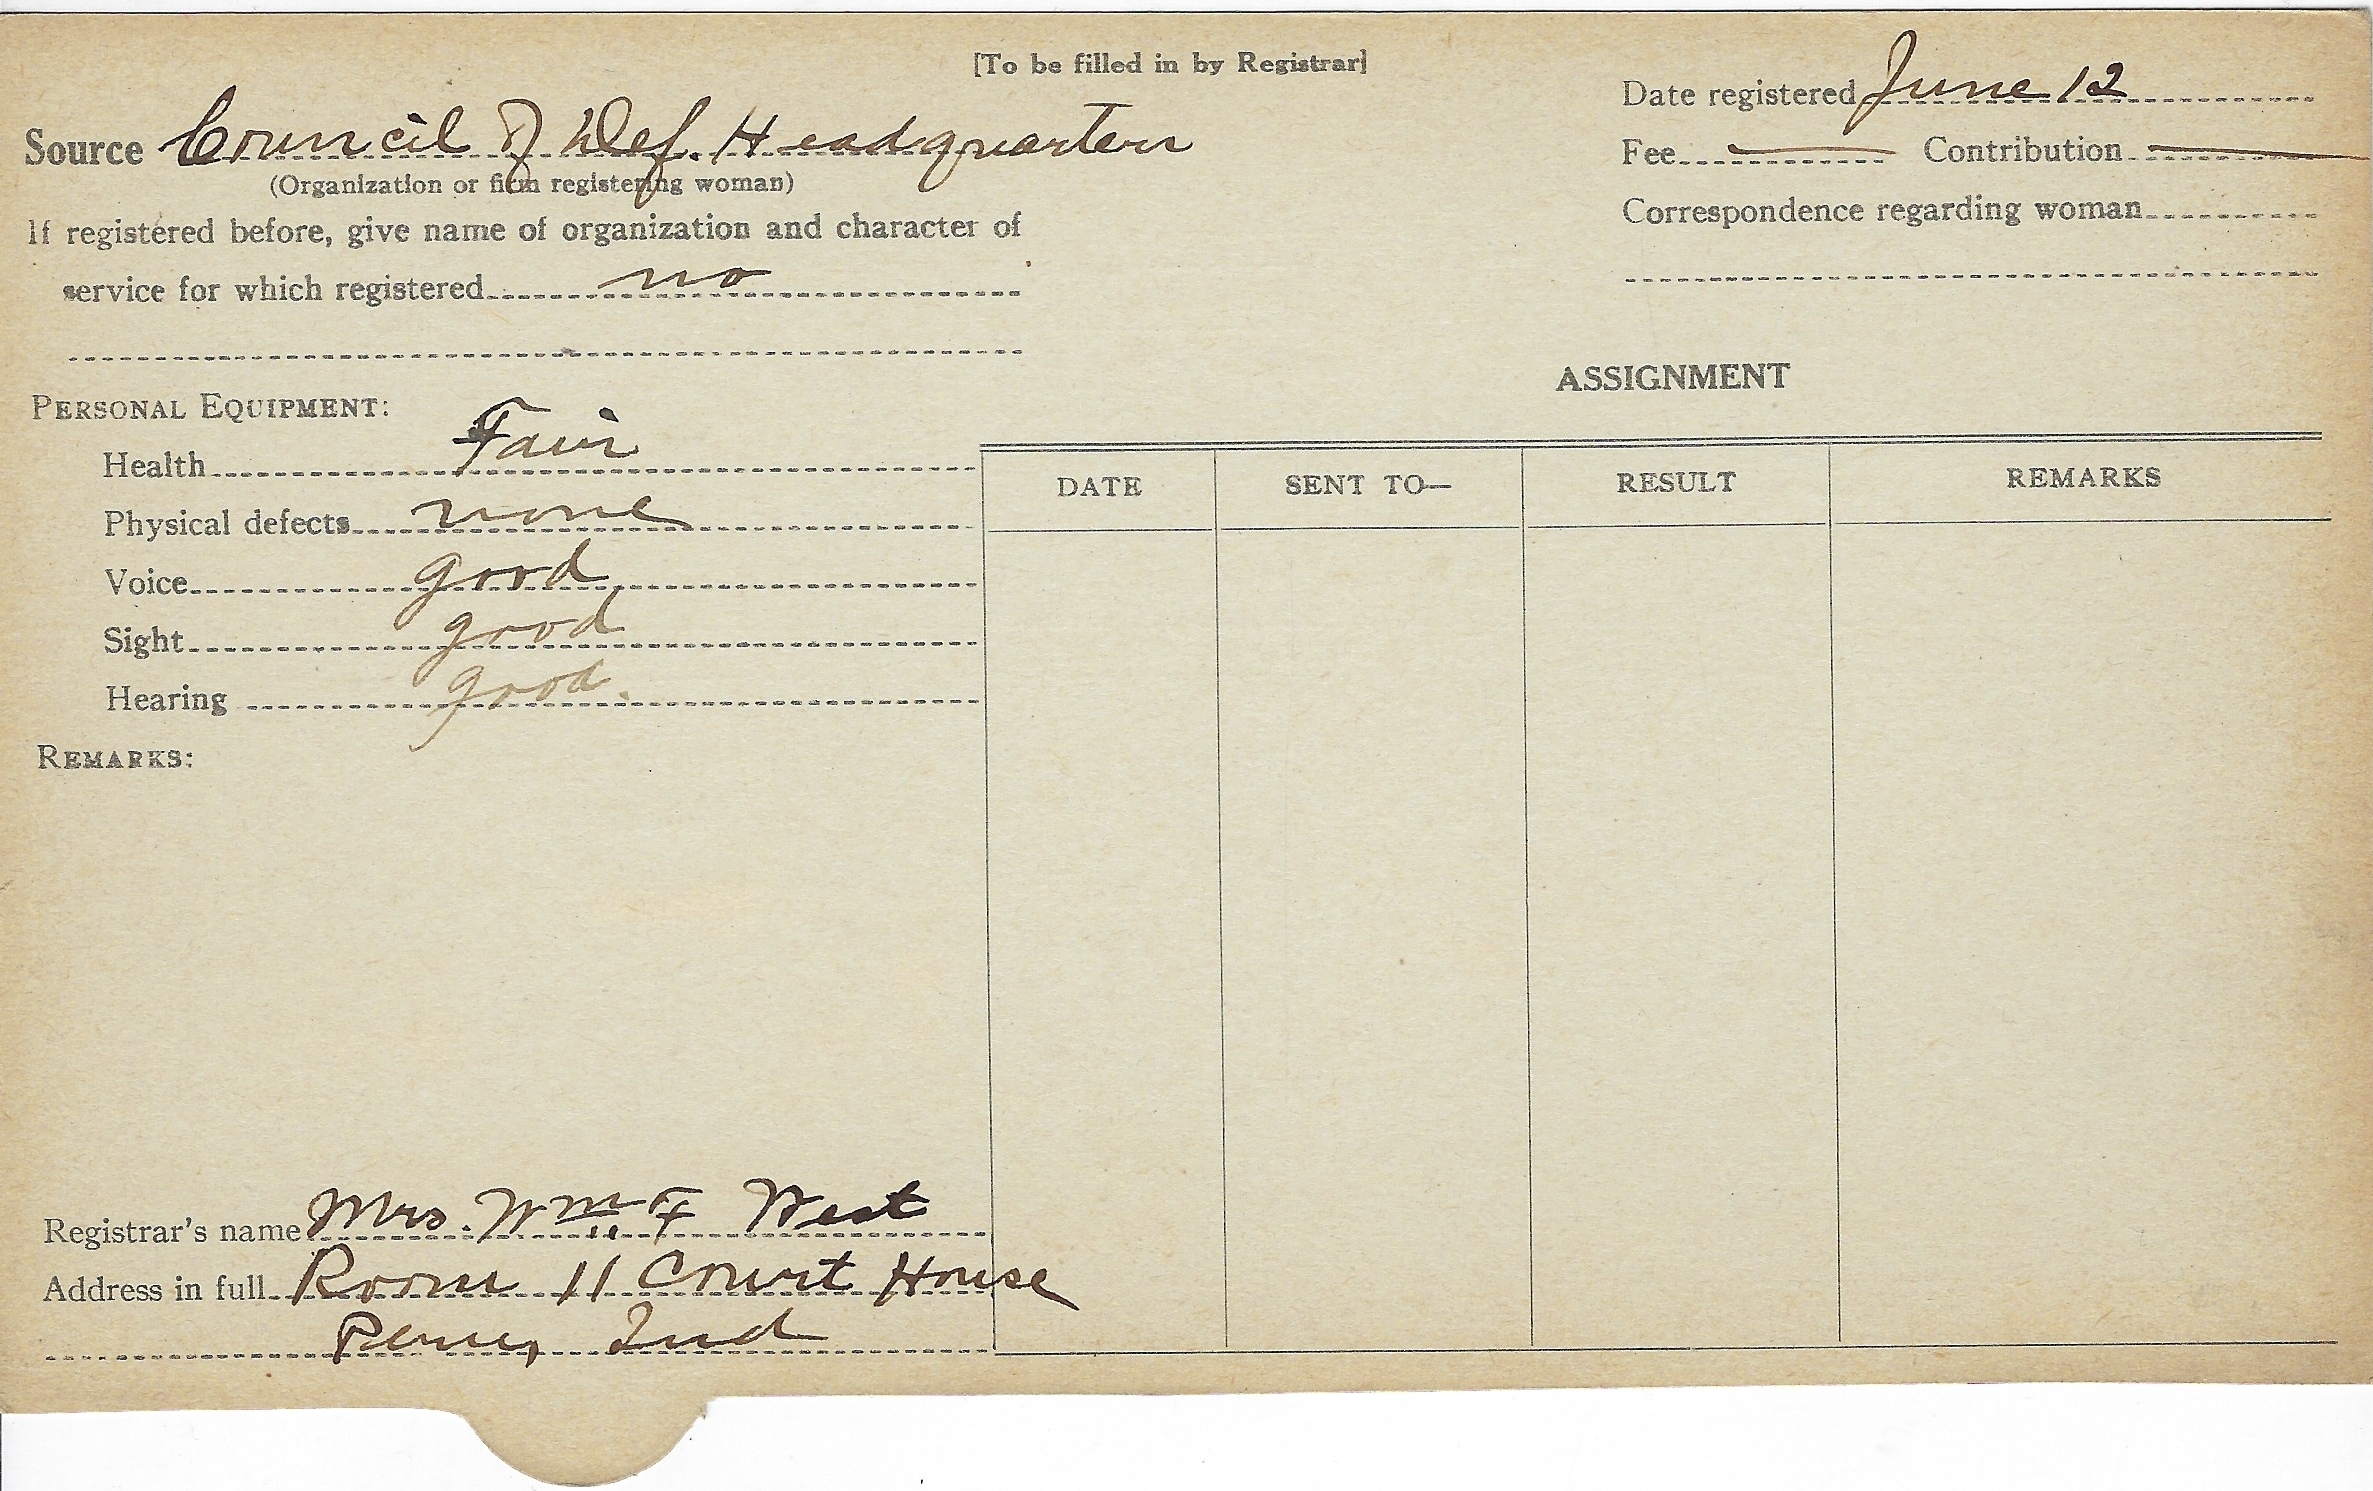 [To be filled in by Registrar]
Date registered June 12
Source Council of Def. Headquarters
(Organization or firm registering woman)
Fee Contribution
If registered before, give name of organization and character of
service for which registered no
Correspondence regarding woman
ASSIGNMENT
PERSONAL EQUIPMENT:
Health Fair
Physical defects none
Voice good
Sight good
Hearing good.
REMARKS:
DATE SENT TO— RESULT REMARKS
Registrar's name Mrs. Wm F West
Address in full Room 11 Court House
Peru, Ind